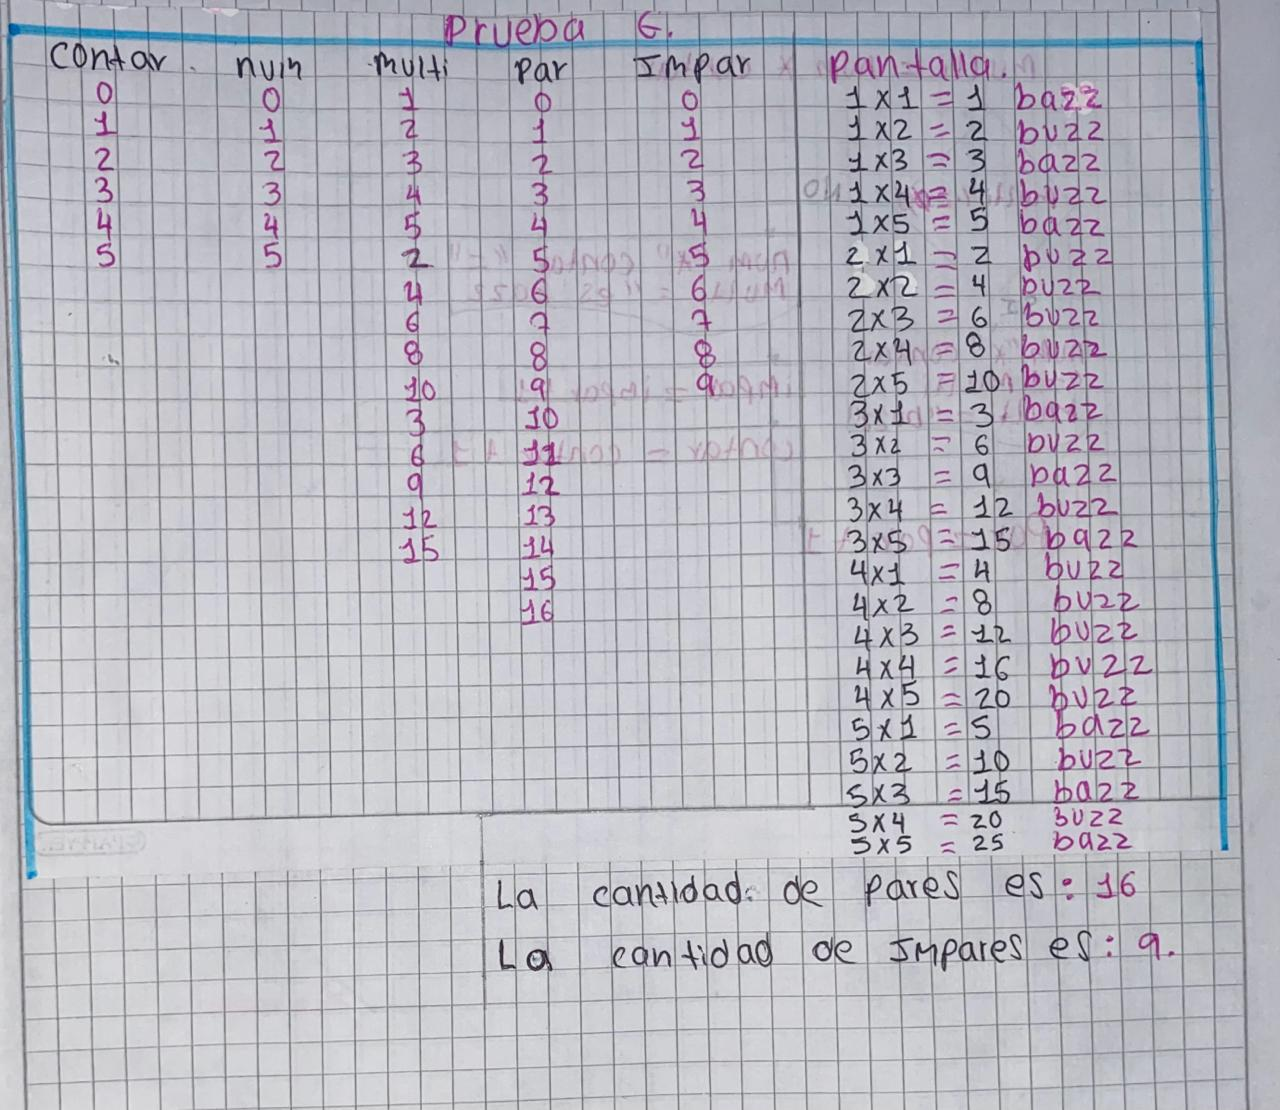 Prueba 6.
contar. num multi Par Impar Pantalla.
0 0 1 0 0 1x1 = 1 bazz
1 1 2 1 1 1x2 = 2 buzz
2 2 3 2 2 1x3 = 3 bazz
3 3 4 3 3 1x4 = 4 buzz
4 4 5 4 4 1x5 = 5 bazz
5 5 2 5 5 2x1 = 2 buzz
4 6 6 2x2 = 4 buzz
6 7 7 2x3 = 6 buzz
8 8 8 2x4 = 8 buzz
10 9 9 2x5 = 10 buzz
3 10 3x1 = 3 bazz
6 11 3x2 = 6 buzz
9 12 3x3 = 9 bazz
12 13 3x4 = 12 buzz
15 14 3x5 = 15 bazz
15 4x1 = 4 buzz
16 4x2 = 8 buzz
4x3 = 12 buzz
4x4 = 16 buzz
4x5 = 20 buzz
5x1 = 5 bazz
5x2 = 10 buzz
5x3 = 15 bazz
5x4 = 20 buzz
5x5 = 25 bazz
La cantidad de Pares es: 16
La cantidad de Impares es: 9.